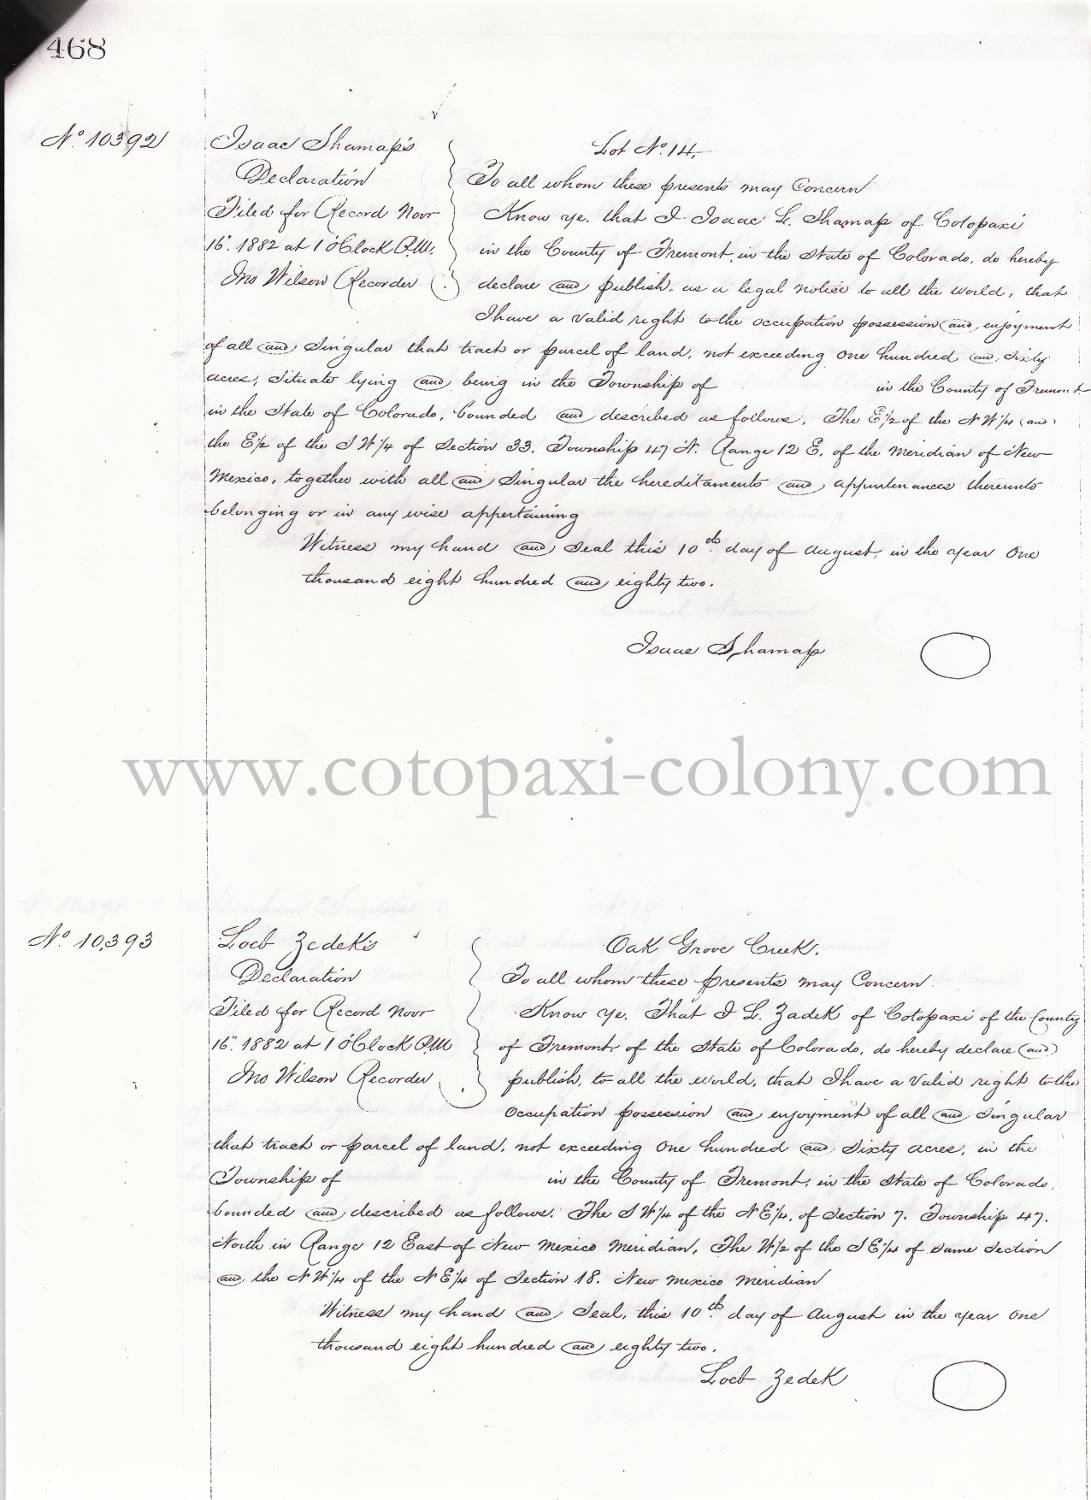 468
No 10392
Isaac Shamap's
Declaration
Filed for Record Novr
16". 1882 at 1 o'Clock P.M.
Jno Wilson Recorder
Lot No. 14.
To all whom these presents may Concern
Know ye. that I Isaac L. Shamap of Cotopaxi
in the County of Fremont, in the State of Colorado, do hereby
declare and publish, as a legal notice to all the world, that
I have a valid right to the occupation possession and enjoyment
of all and Singular that tract or parcel of land, not exceeding One hundred and Sixty
acres, situate lying and being in the Township of in the County of Fremont
in the State of Colorado, bounded and described as follows, The E 1/2 of the N W 1/4 and
the E 1/2 of the S W 1/4 of Section 33. Township 47 N. Range 12 E. of the Meridian of New
Mexico, together with all and Singular the hereditaments and appurtenances thereunto
belonging or in any wise appertaining
Witness my hand and Seal this 10th day of August, in the year One
thousand eight hundred and eighty two.
Isaac Shamap
www.cotopaxi-colony.com
No 10,393
Loeb Zedek's
Declaration
Filed for Record Novr
16". 1882 at 1 o'Clock P.M
Jno Wilson Recorder
Oak Grove Creek.
To all whom these presents may Concern.
Know ye. That I L. Zadek of Cotopaxi of the County
of Fremont of the State of Colorado, do hereby declare and
publish, to all the world, that I have a valid right to the
Occupation possession and enjoyment of all and Singular
that tract or parcel of land, not exceeding One hundred and Sixty acres, in the
Township of in the County of Fremont, in the State of Colorado,
bounded and described as follows. The S W 1/4 of the N E 1/4, of Section 7. Township 47.
North in Range 12 East of New Mexico Meridian, The W 1/2 of the S E 1/4 of same section
and the N W 1/4 of the N E 1/4 of Section 18. New Mexico Meridian
Witness my hand and Seal, this 10th day of August in the year One
thousand eight hundred and eighty two.
Loeb Zedek